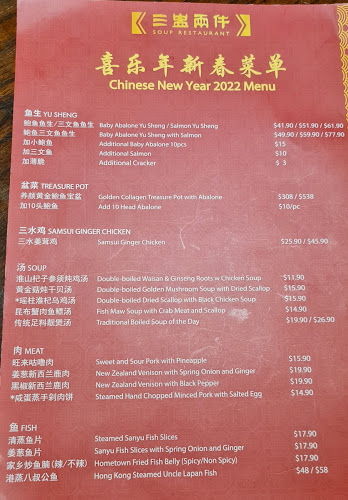 三盅兩件
SOUP RESTAURANT
喜乐年新春菜单
Chinese New Year 2022 Menu
鱼生 YU SHENG
鲍鱼鱼生/三文鱼鱼生 Baby Abalone Yu Sheng / Salmon Yu Sheng $41.90 / $51.90 / $61.90
鲍鱼三文鱼鱼生 Baby Abalone Yu Sheng with Salmon $49.90 / $59.90 / $77.90
加小鲍鱼 Additional Baby Abalone 10pcs $15
加三文鱼 Additional Salmon $10
加薄脆 Additional Cracker $ 3
盆菜 TREASURE POT
养颜黄金鲍鱼宝盆 Golden Collagen Treasure Pot with Abalone $308 / $538
加10头鲍鱼 Add 10 Head Abalone $10/pc
三水鸡 SAMSUI GINGER CHICKEN
三水姜茸鸡 Samsui Ginger Chicken $25.90 / $45.90
汤 SOUP
淮山杞子参须炖鸡汤 Double-boiled Waisan & Ginseng Roots w Chicken Soup $11.90
黄金菇炖干贝汤 Double-boiled Golden Mushroom Soup with Dried Scallop $15.90
*瑶柱淮杞乌鸡汤 Double-boiled Dried Scallop with Black Chicken Soup $15.90
昆布蟹肉鱼鳔汤 Fish Maw Soup with Crab Meat and Scallop $14.90
传统足料靓煲汤 Traditional Boiled Soup of the Day $19.90 / $26.90
肉 MEAT
旺来咕噜肉 Sweet and Sour Pork with Pineapple $15.90
姜葱新西兰鹿肉 New Zealand Venison with Spring Onion and Ginger $19.90
黑椒新西兰鹿肉 New Zealand Venison with Black Pepper $19.90
*咸蛋蒸手剁肉饼 Steamed Hand Chopped Minced Pork with Salted Egg $14.90
鱼 FISH
清蒸鱼片 Steamed Sanyu Fish Slices $17.90
姜葱鱼片 Sanyu Fish Slices with Spring Onion and Ginger $17.90
家乡炒鱼腩 (辣/不辣) Hometown Fried Fish Belly (Spicy/Non Spicy) $17.90
港蒸八叔公鱼 Hong Kong Steamed Uncle Lapan Fish $48 / $58